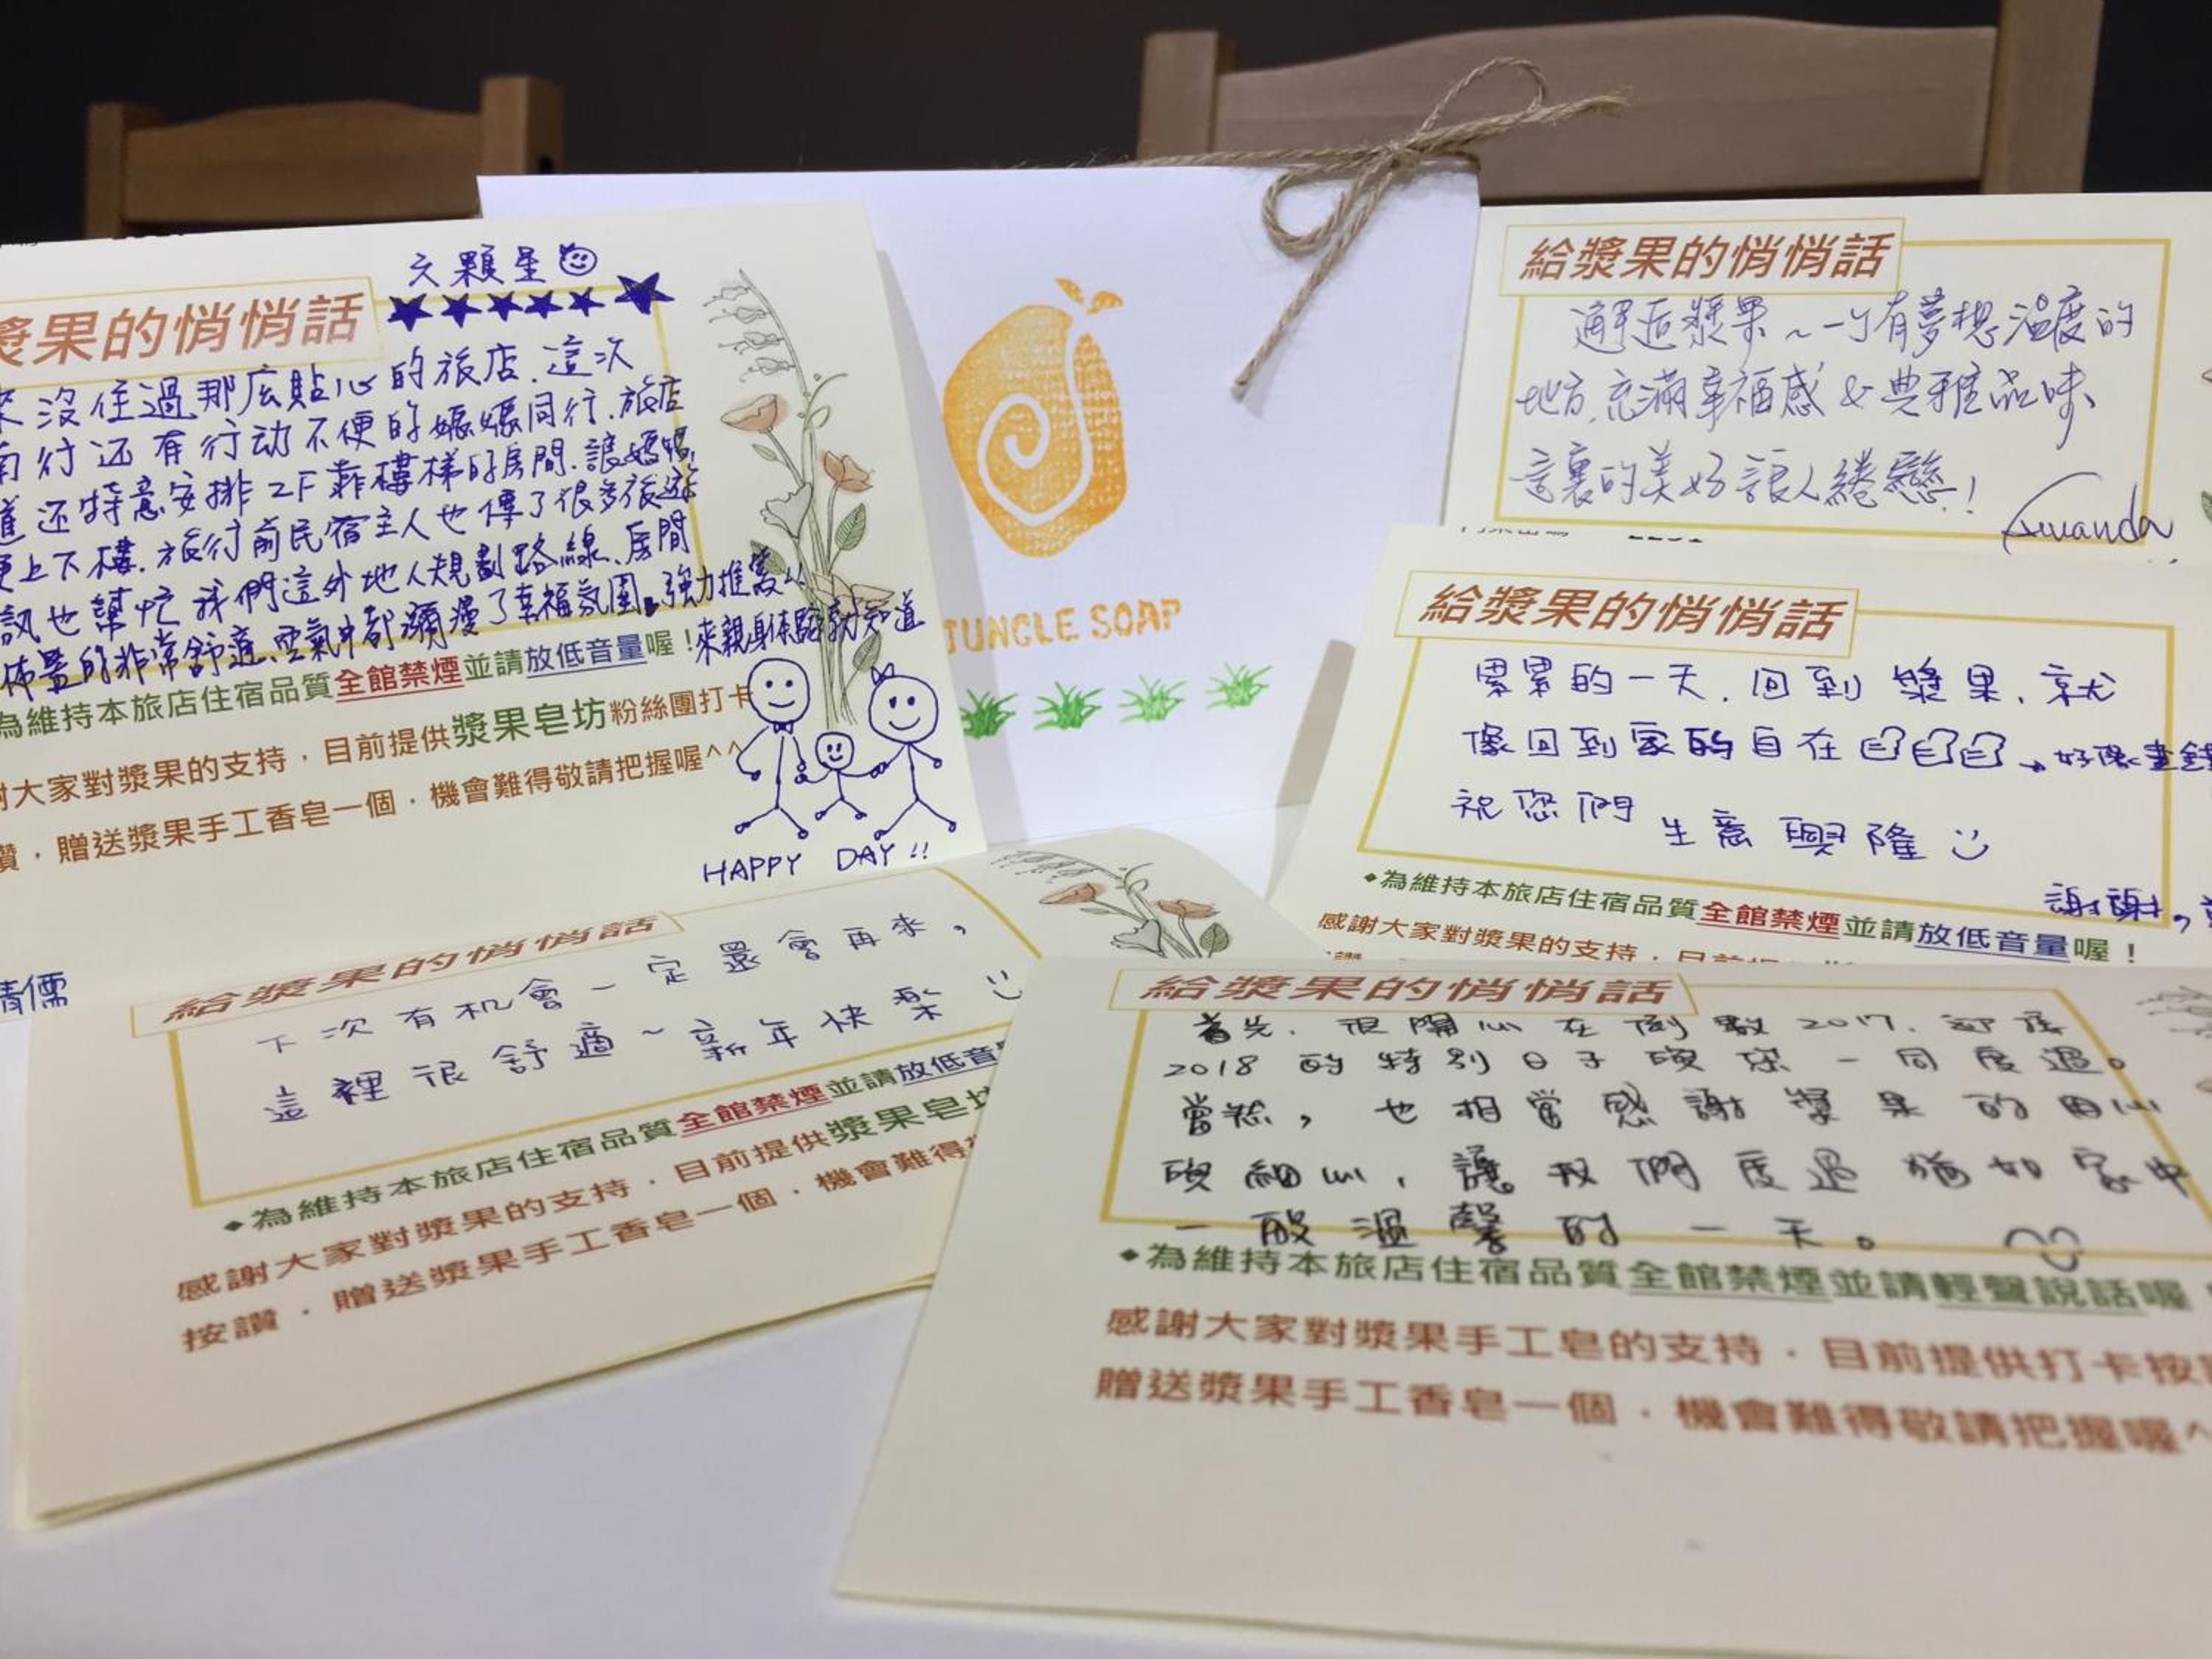 六顆星
漿果的悄悄話
來沒住過那么貼心的旅店.這次
南行还有行动不便的媽媽同行.旅店
道还特意安排2F靠樓梯的房間.讓媽媽
更上下樓.旅行前民宿主人也傳了很多旅遊
訊也幫忙我們這外地人規劃路線、房間
佈置的非常舒適、空氣中都瀰漫了幸福氛圍。強力推薦!!
來親身体驗就知道
為維持本旅店住宿品質全館禁煙並請放低音量喔！
謝大家對漿果的支持，目前提供漿果皂坊粉絲團打卡
讚，贈送漿果手工香皂一個，機會難得敬請把握喔^^
HAPPY DAY!!
JUNGLE SOAP
給漿果的悄悄話
邂逅漿果～一个有夢想溫度的
地方,充滿幸福感&典雅品味
這裏的美好讓人綣戀!
給漿果的悄悄話
累累的一天.回到漿果.就
像回到家的自在
→好像畫錯
祝您們 生意興隆
謝謝,
◆為維持本旅店住宿品質全館禁煙並請放低音量喔！
感謝大家對漿果的支持，目前提
給漿果的悄悄話
下次有机會一定還會再來，
這裡很舒適～新年快樂
◆為維持本旅店住宿品質全館禁煙並請放低音
感謝大家對漿果的支持，目前提供漿果皂坊
按讚，贈送漿果手工香皂一個，機會難得
給漿果的悄悄話
首先.很開心在倒數2017.迎接
2018的特別日子與您一同度過。
當然，也相當感謝漿果的用心
與細心，讓我們度過猶如家中
一般溫馨的一天。
◆為維持本旅店住宿品質全館禁煙並請輕聲說話喔
感謝大家對漿果手工皂的支持，目前提供打卡按
贈送漿果手工香皂一個，機會難得敬請把握喔^